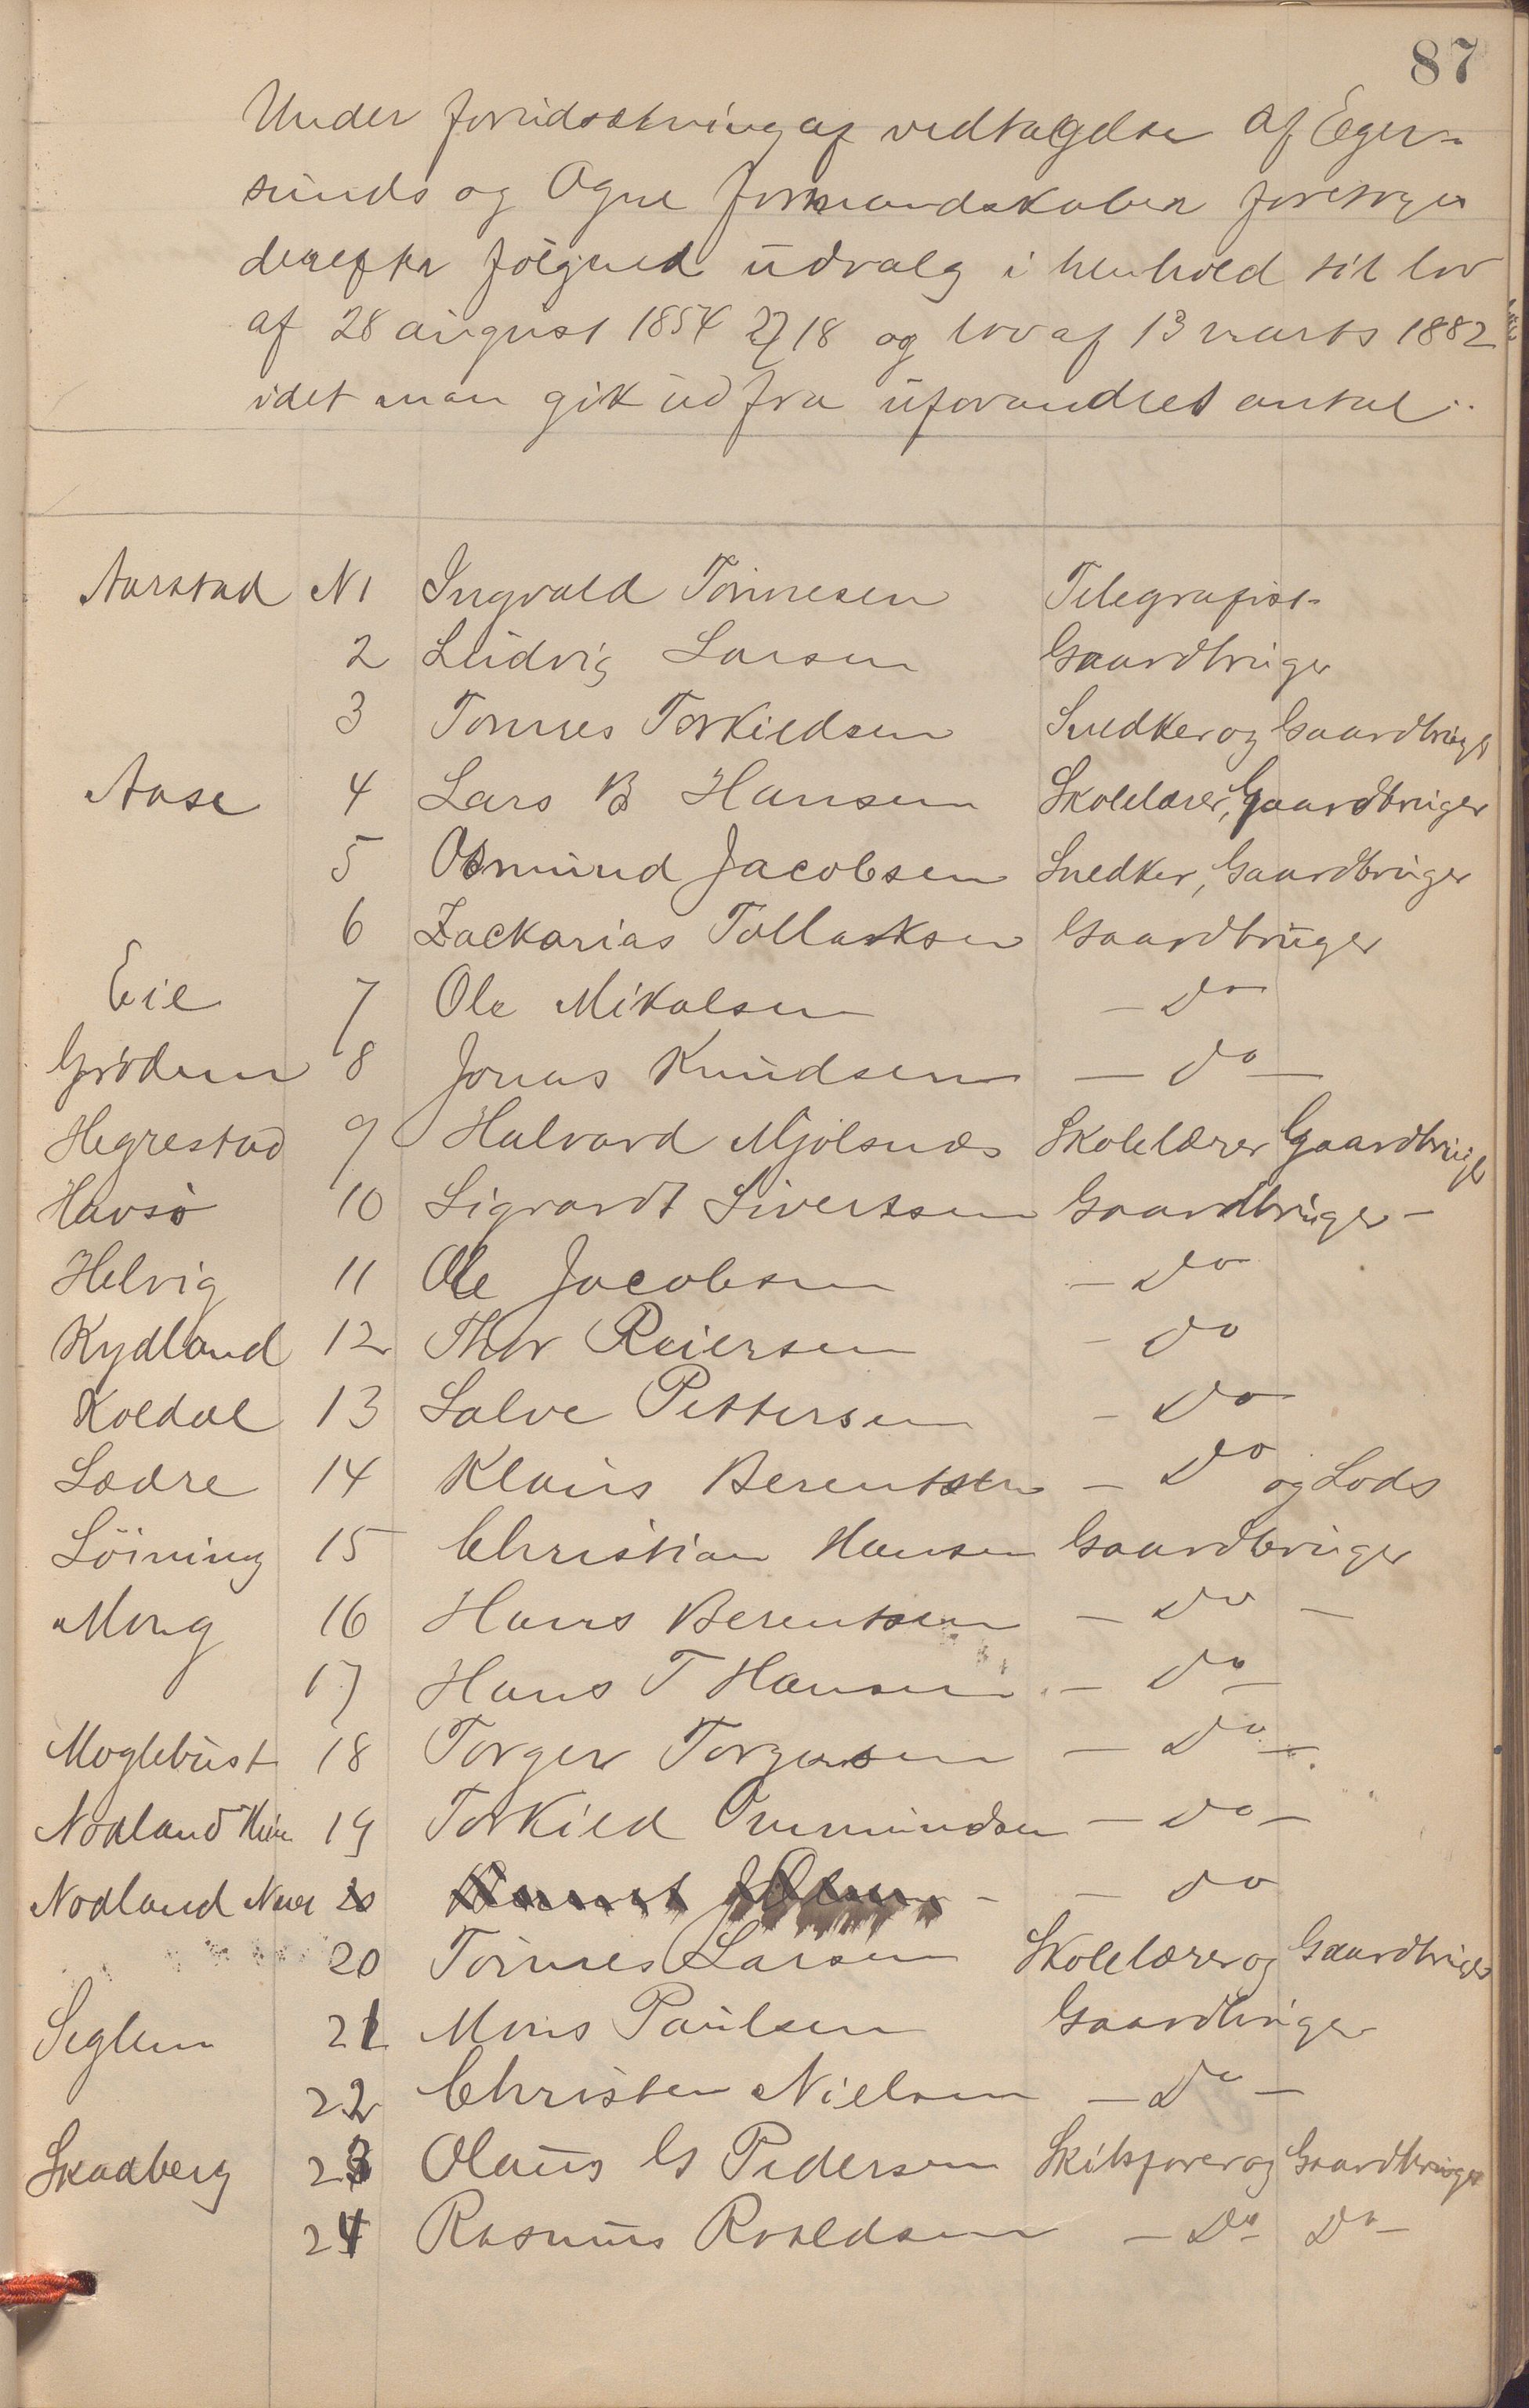 87
Under forudsætning af vedtagelse af Eger-
sunds og Ogne formandskaber foretoges
derefter følgned udvalg i henhold til lov
af 28 august 1854 § 18 og lov af 13 marts 1882
idet man gik ud fra uforandret antal:
Aarstad N 1 Ingvald Tönnesen Telegrafist
2 Ludvig Larsen Gaardbruger
3 Tonnes Torkildsen Snedker og Gaardbruger
Aase 4 Lars B Hansen Skolelærer, Gaardbruger
5 Osmund Jacobsen Snedker, Gaardbruger
6 Zackarias Tollaksen Gaardbruger
Eie 7 Ole Mikalsen - Do
Grödem 8 Jonas Knudsen - do -
Hegrestad 9 Halvard Mjölsnæs Skolelærer Gaardbruger
Havsö 10 Sigvardt Sivertsen Gaardbruger -
Helvig 11 Ole Jacobsen - Do
Kydland 12 Thor Reiersen - do
Koldal 13 Salve Pettersen - Do
Lædre 14 Klaus Berentsen - Do og Lods
Löining 15 Christian Hansen Gaardbruger
Mong 16 Hans Berentsen - Do -
17 Hans T Hansen - do -
Moglebust 18 Torger Torgersen - Do -
Nodland 19 Torkild Ommundsen - Do -
Nodland Nedr 20 - - do
20 Tönnes Larsen Skolelærer og Gaardbruger
Seglem 21 Mons Paulsen Gaardbruger
22 Christen Nielsen - Do -
Skadberg 23 Olaus G Pedersen Skibsfører og Gaardbruger
24 Rasmus Roaldsen - Do - Do -